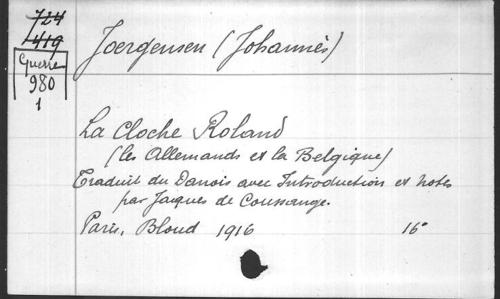 724
1419
Guerre
980
1
Joergensen (Johannès)
La Cloche Roland
(les Allemands et la Belgique)
Traduit du Danois avec Introduction et notes
par Jacques de Coussange.
Paris, Bloud 1916 16°